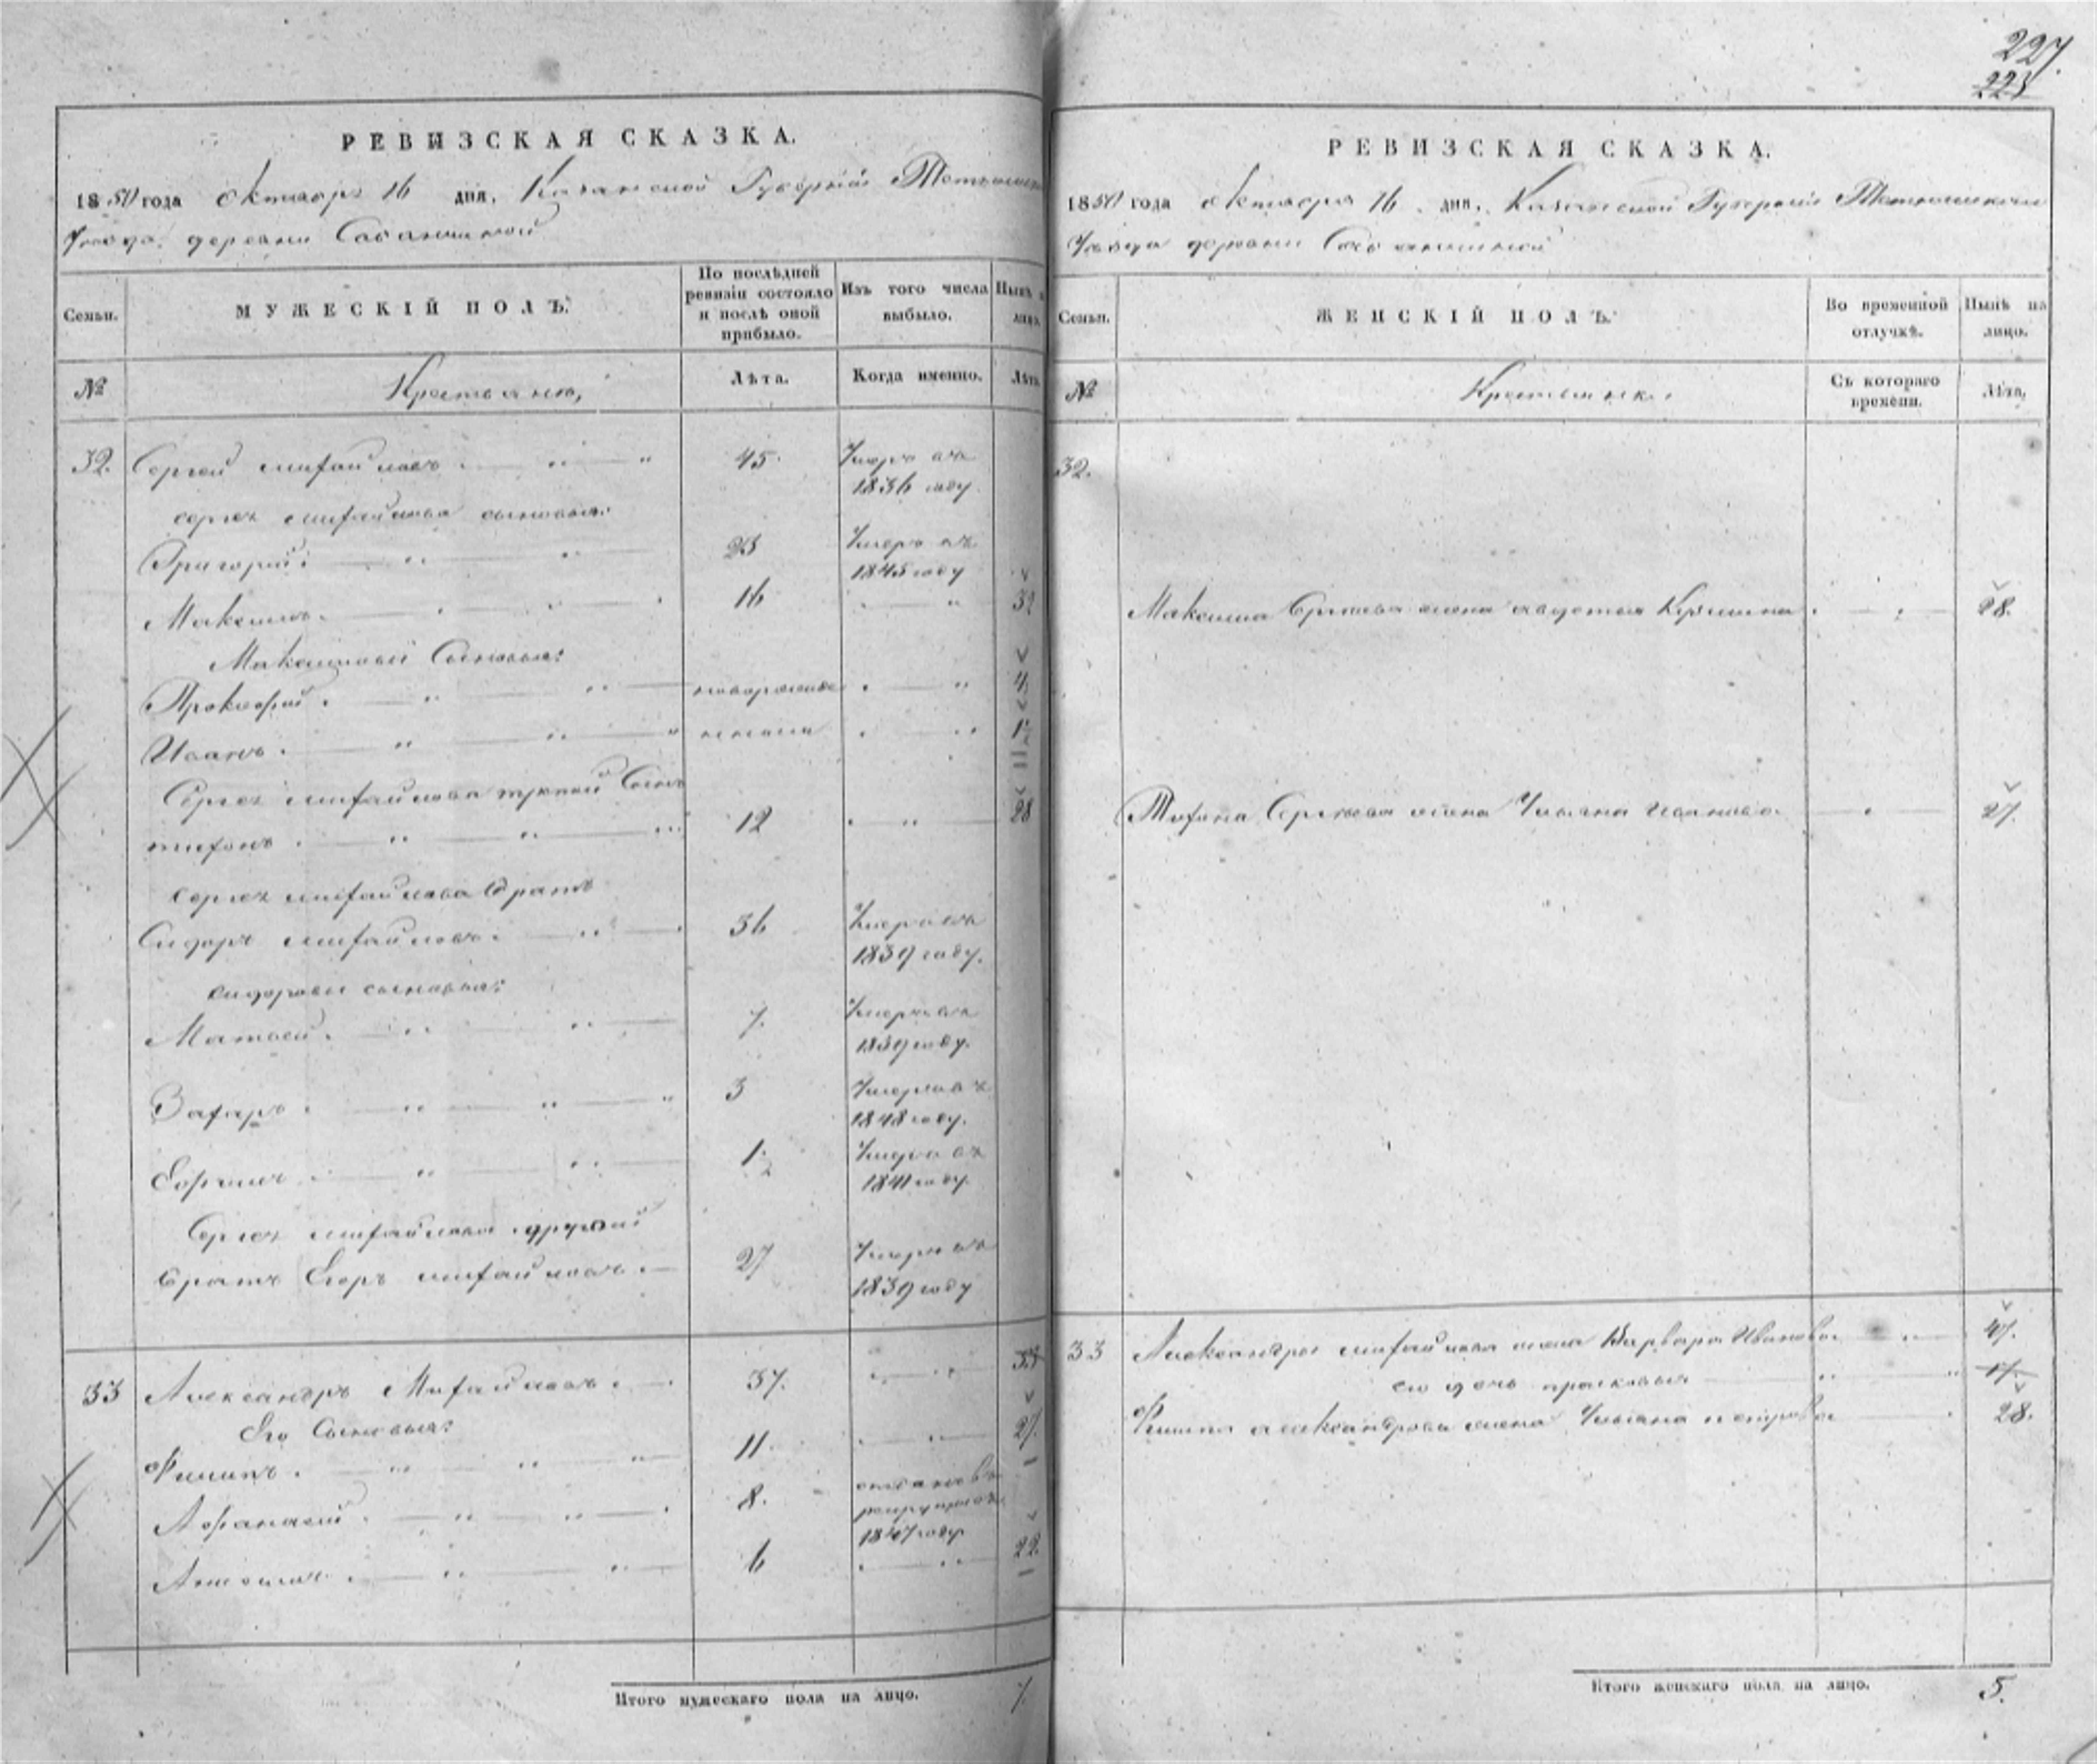 227.
223
РЕВИЗСКАЯ СКАЗКА.
1850 года Октября 16 дня. Казанской Губернiи
Уезда деревни
Семьи.
МУЖЕСКІЙ ПОЛЪ.
По послѣдней ревизіи состояло и послѣ оной прибыло.
Изъ того числа выбыло.
Нынѣ на лицо.
№
Крестьяне,
Лѣта.
Когда именно.
Лѣта.
32. Сергей михайловъ 45. Умеръ въ
1836 году
сергея михайлова сыновья:
Григорий 23 Умеръ въ
1845 году
Максимъ 16 32
Максимовы Сыновья:
Прокофий новорожден 4
Иванъ 1
Сергея михайлова третий Сынъ
тихонъ 12 28
Сергея михайлова братъ
Сидоръ михайловъ 36 Умеръ въ
1839 году.
сидоровы сыновья:
Матвей 7. Умеръ въ
1839 году.
Захаръ 3 Умеръ въ
1848 году.
Ефимъ 1 Умеръ въ
1841 году.
Сергея михайлова другой
братъ Егоръ михайловъ 27 Умеръ въ
1839 году
33 Александръ Михайловъ 37. 53
Его Сыновья:
Филипъ 11. 27.
Афанасий 8. отданъ въ
рекруты въ
1847 году
6 22.
Итого мужескаго пола на лицо. 7.
РЕВИЗСКАЯ СКАЗКА.
1850 года Октября 16 дня. Казанской Губернiи
Уезда деревни
Семьи.
ЖЕНСКІЙ ПОЛЪ.
Во временной отлучкѣ.
Нынѣ на лицо.
№
Крестьянск.
Съ котораго времени.
Лѣта.
32.
Максима Сергеева жена 28.
Тихона Сергеева жена Ульяна Иванова 27.
33 Александра михайлова жена Варвара Иванова 47.
его дочь прасковья 17
Филипа александрова жена Ульяна петрова 28.
Итого женскаго пола на лицо. 5.